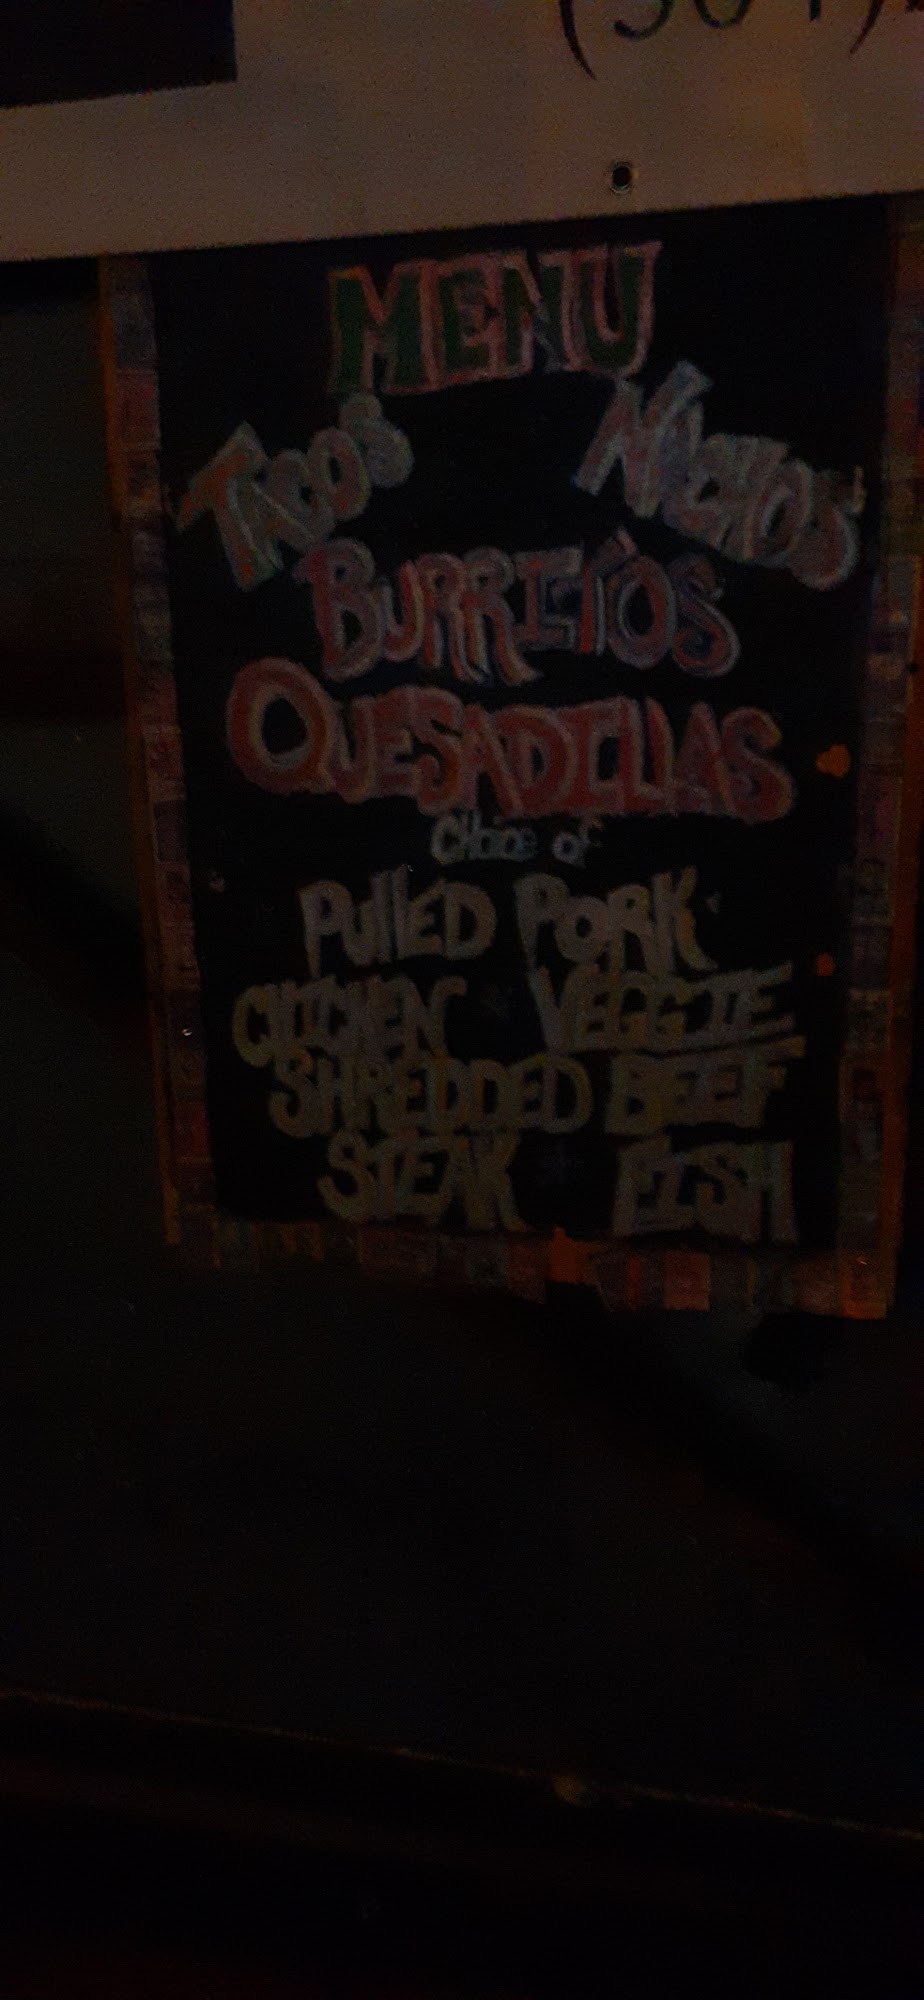 (504)
MENU
TACOS NACHOS
BURRITOS
QUESADILLAS
Choice of
PULLED PORK
CHICKEN VEGGIE
SHREDDED BEEF
STEAK FISH